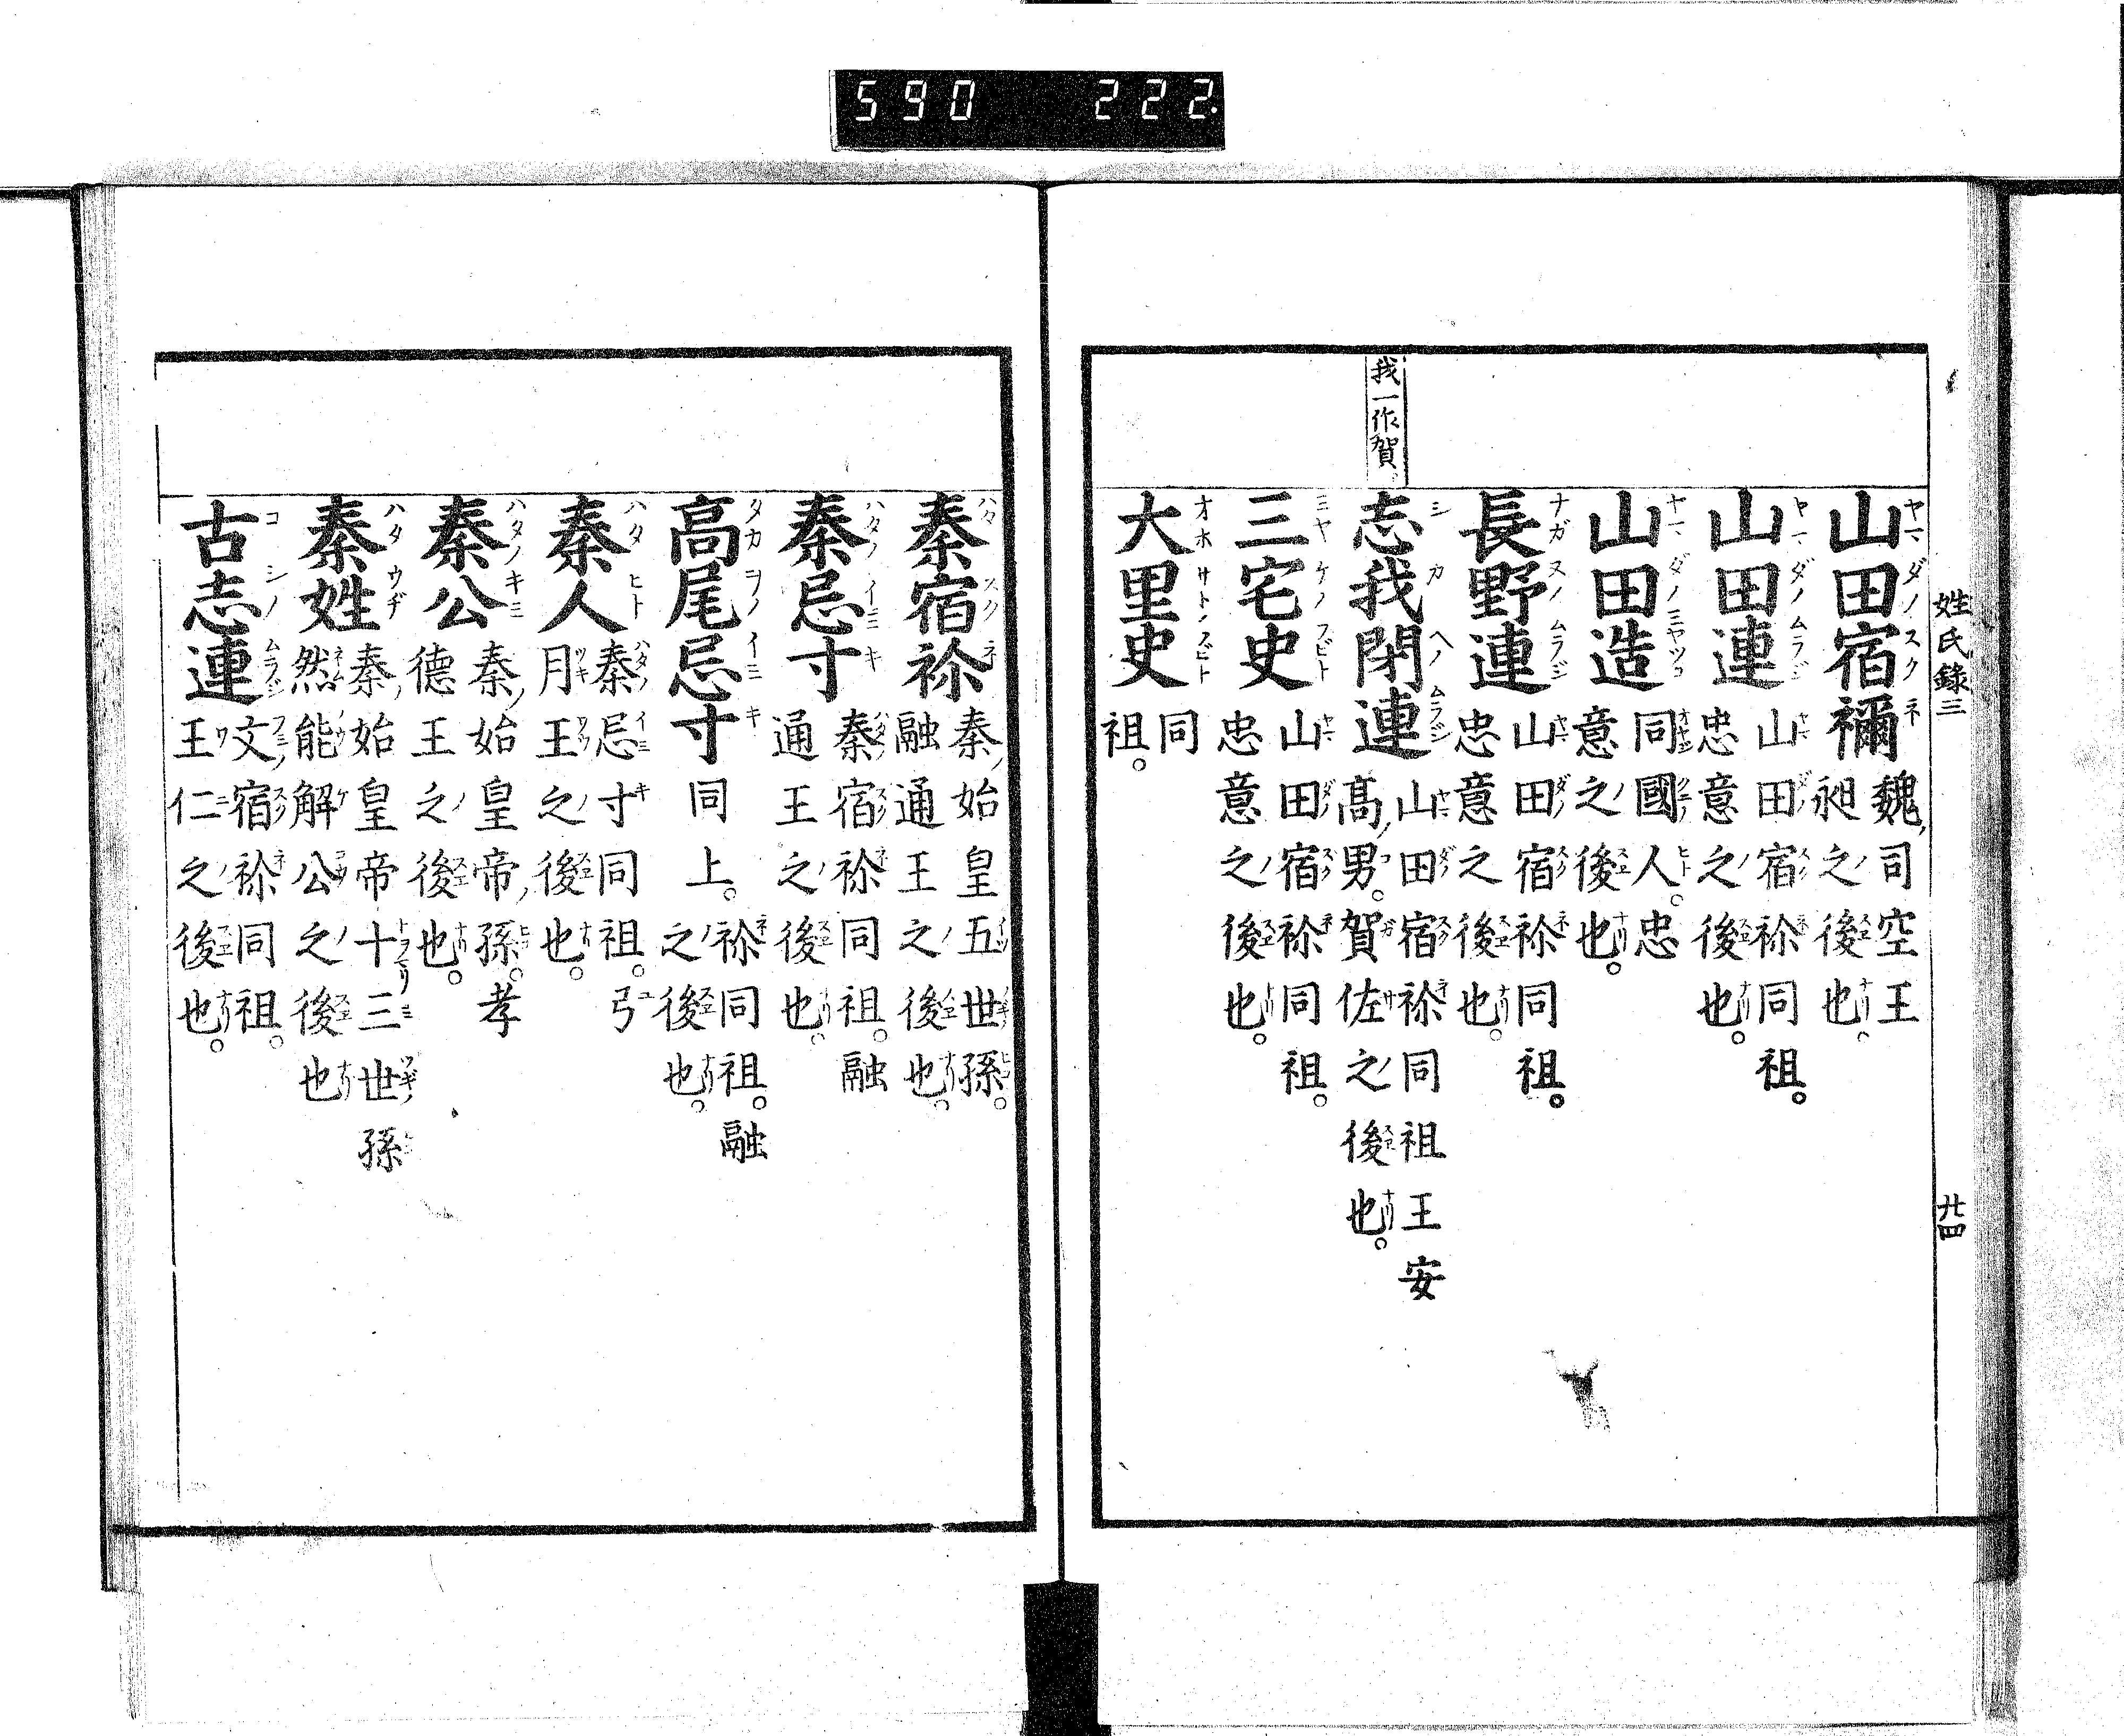 590 222.
姓氏錄三
廿四
我一作賀
山田宿禰
魏司空王
昶之後也。
山田連
山田宿祢同祖。
忠意之後也。
山田造
同國人。忠
意之後也。
長野連
山田宿祢同祖。
忠意之後也。
志我閉連
山田宿祢同祖王安
高男。賀佐之後也。
三宅史
山田宿祢同祖。
忠意之後也。
大里史
同
祖。
秦宿祢
秦始皇五世孫。
融通王之後也。
秦忌寸
秦宿祢同祖。融
通王之後也。
高尾忌寸
同上。
祢同祖。融
之後也。
秦人
秦忌寸同祖。弓
月王之後也。
秦公
秦始皇帝孫。孝
德王之後也。
秦姓
秦始皇帝十三世孫
然能解公之後也
古志連
文宿祢同祖。
王仁之後也。